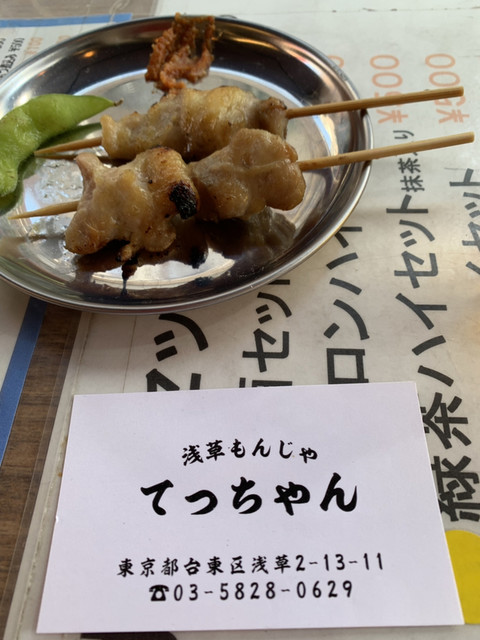 ¥500
¥500
緑茶ハイセット抹茶入り
ロンハイ
セット
セット
浅草もんじゃ
てっちゃん
東京都台東区浅草2-13-11
☎03-5828-0629